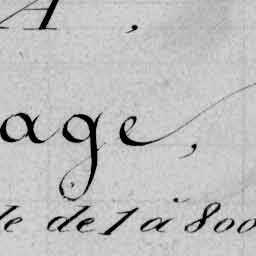 A,
age,
le de 1 à 800